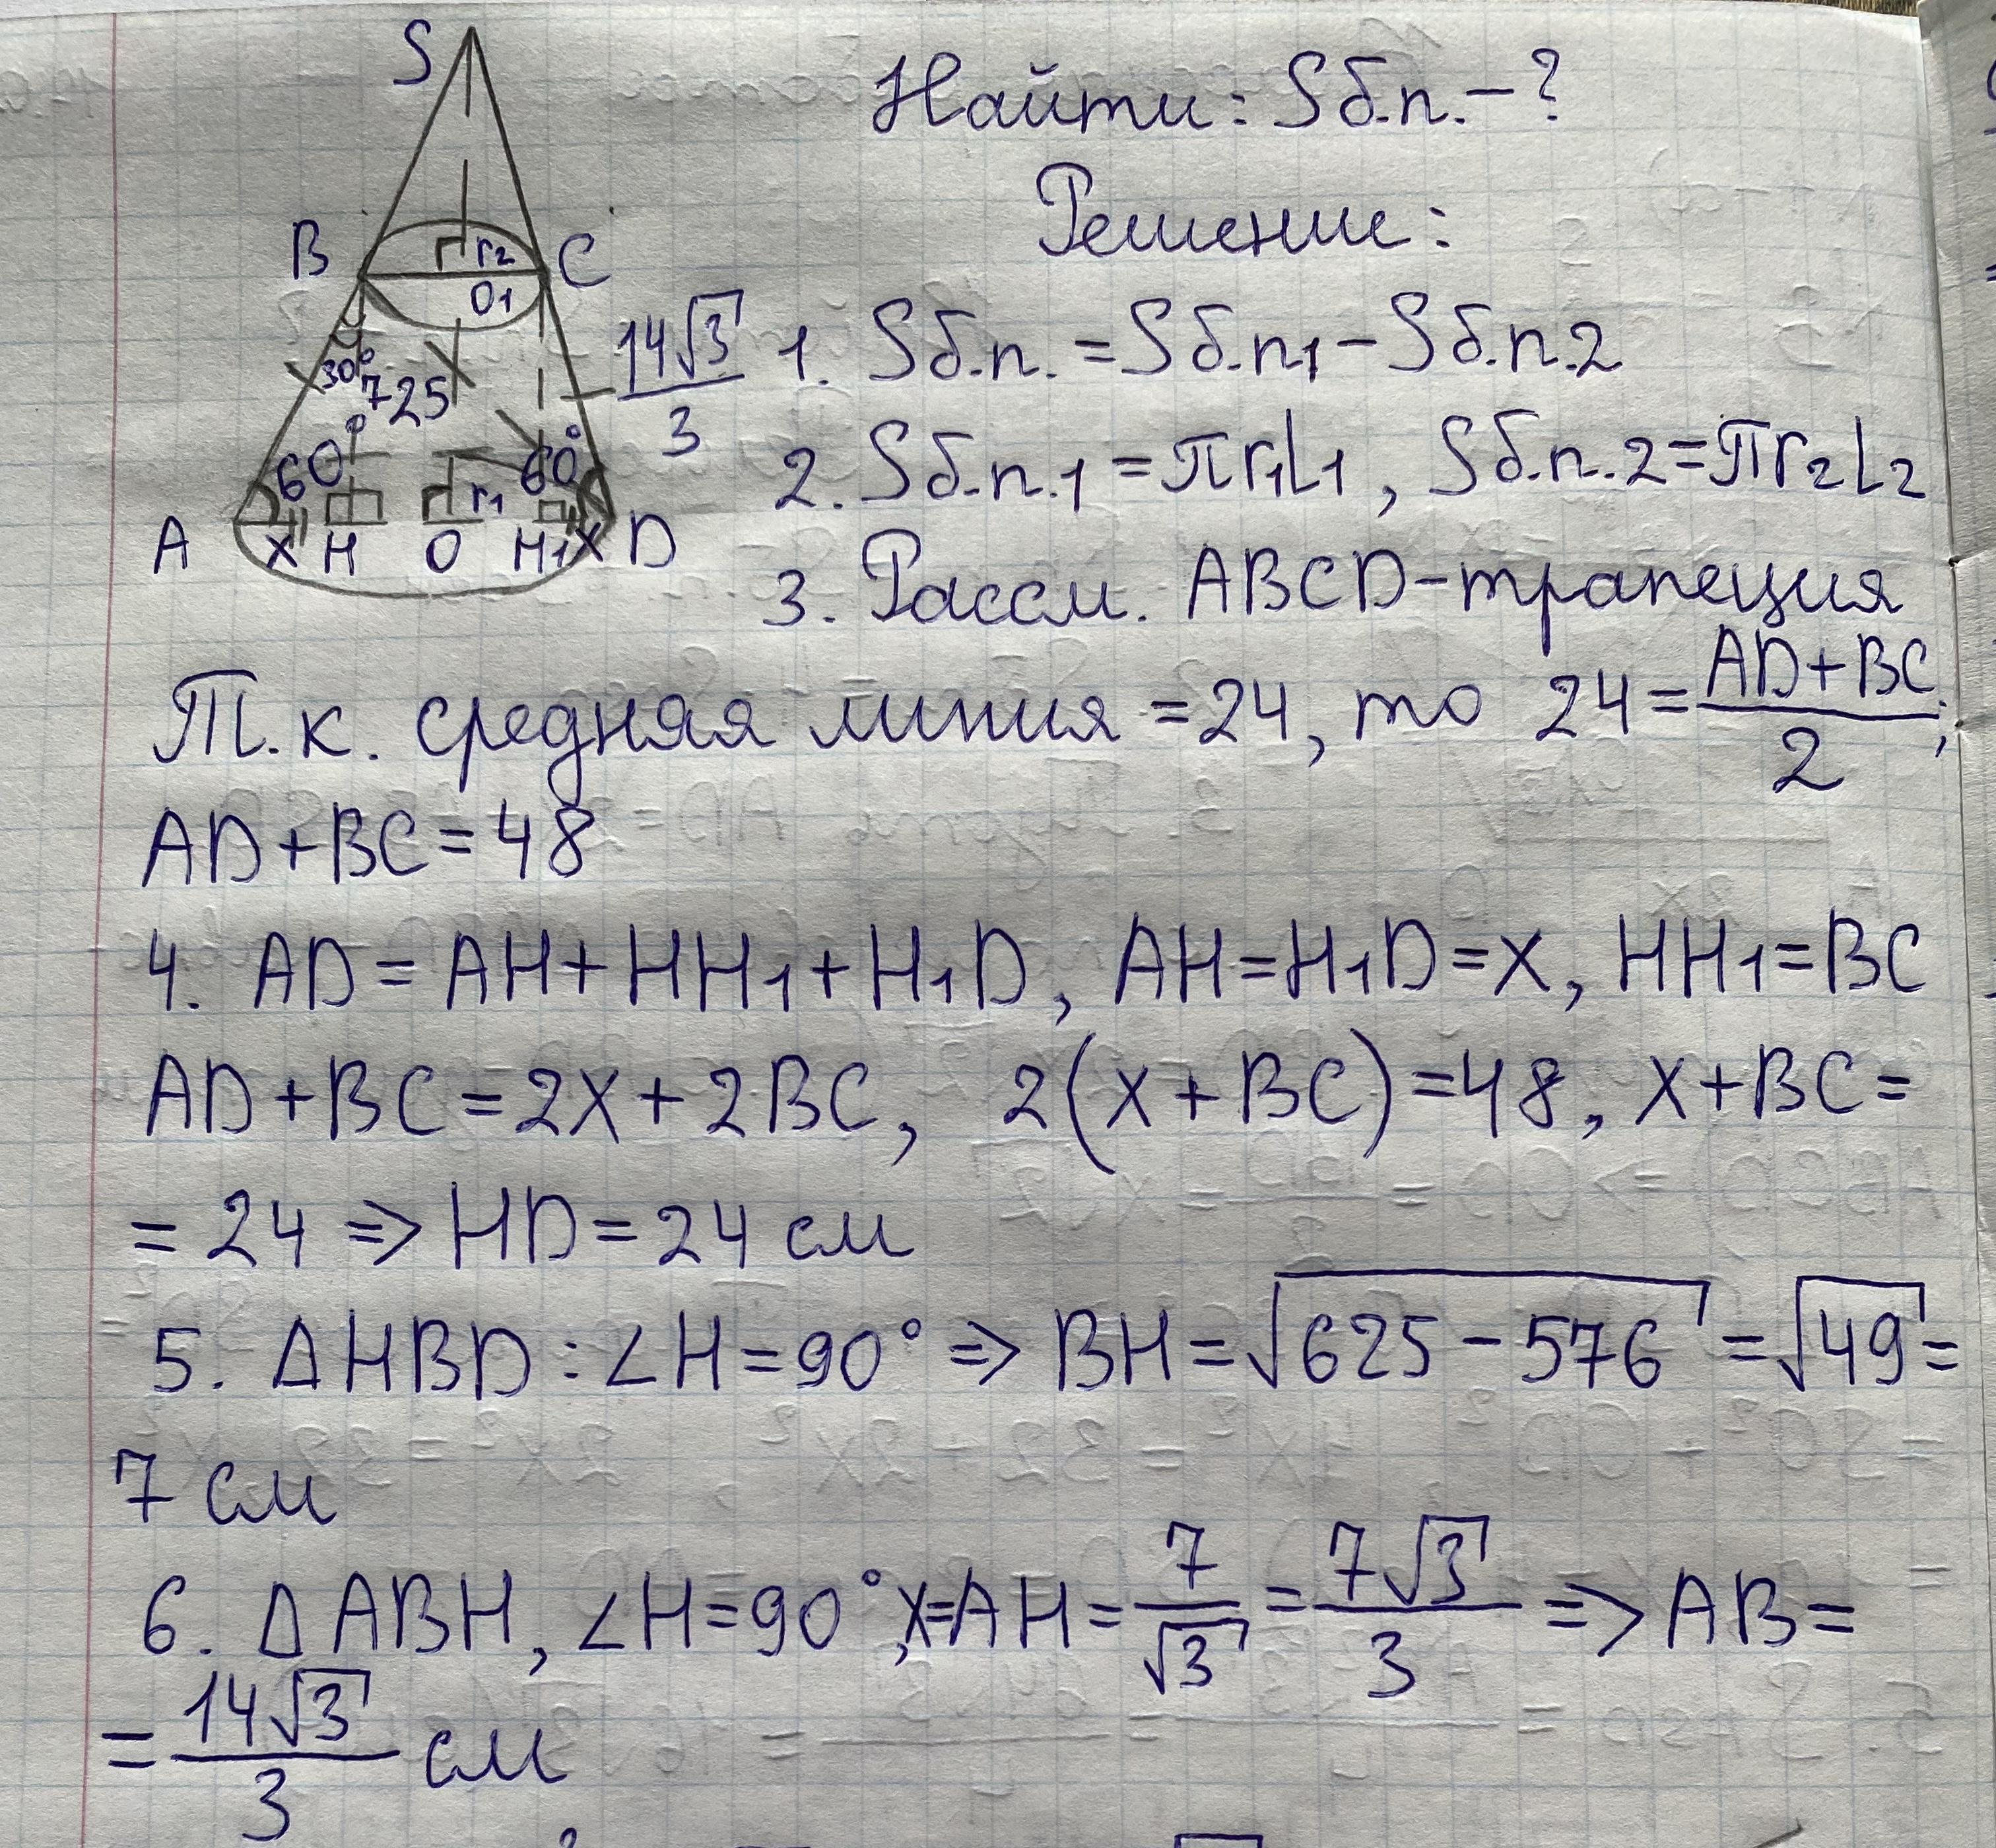 S
B r₂ C
O₁
30° 7 25
14√3/3
60° 60°
r₁
A X H O H₁ X D
Найти: Sб.п. – ?
Решение:
1. Sб.п. = Sб.п1 – Sб.п.2
2. Sб.п.1 = πr₁L₁, Sб.п.2 = πr₂L₂
3. Рассм. ABCD – трапеция
Т.к. средняя линия = 24, то 24 = (AD + BC)/2;
AD + BC = 48
4. AD = AH + HH₁ + H₁D, AH = H₁D = X, HH₁ = BC
AD + BC = 2X + 2BC, 2(X + BC) = 48, X + BC =
= 24 => HD = 24 см
5. ΔHBD: ∠H = 90° => BH = √(625 – 576) = √49 =
7 см
6. ΔABH, ∠H = 90°, X = AH = 7/√3 = 7√3/3 => AB =
= 14√3/3 см